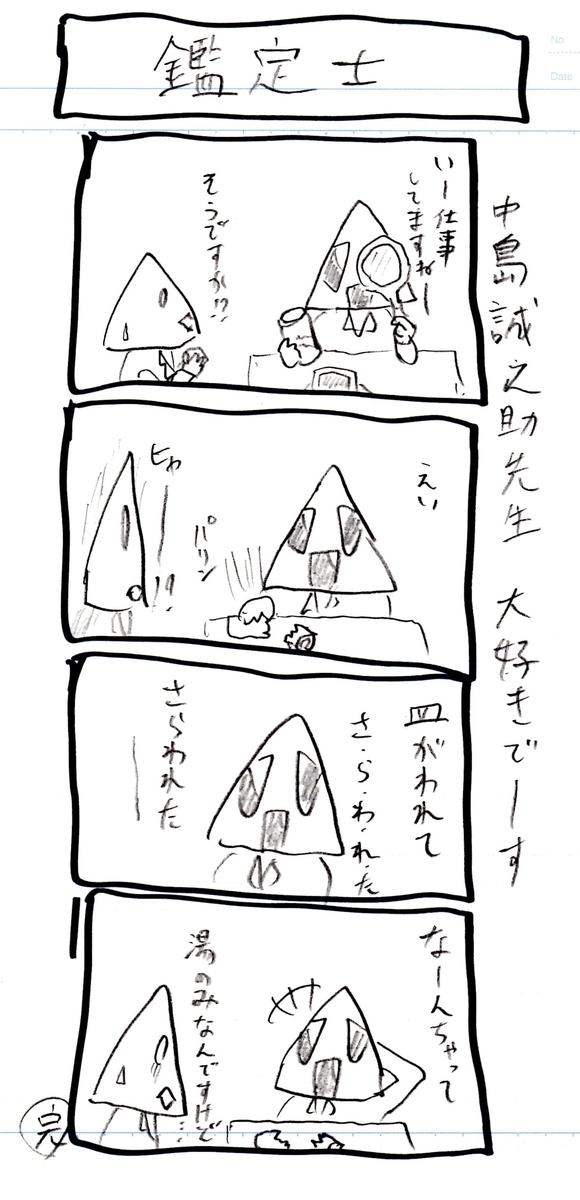 No.
Date
鑑定士
中島誠之助先生 大好きでーす
いー仕事
してますねー
そうですか!?
えい
パリン
ヒャー!?
皿がわれて
さ・ら・わ・れ・た
さらわれたー
なーんちゃって
湯のみなんですけど…
完